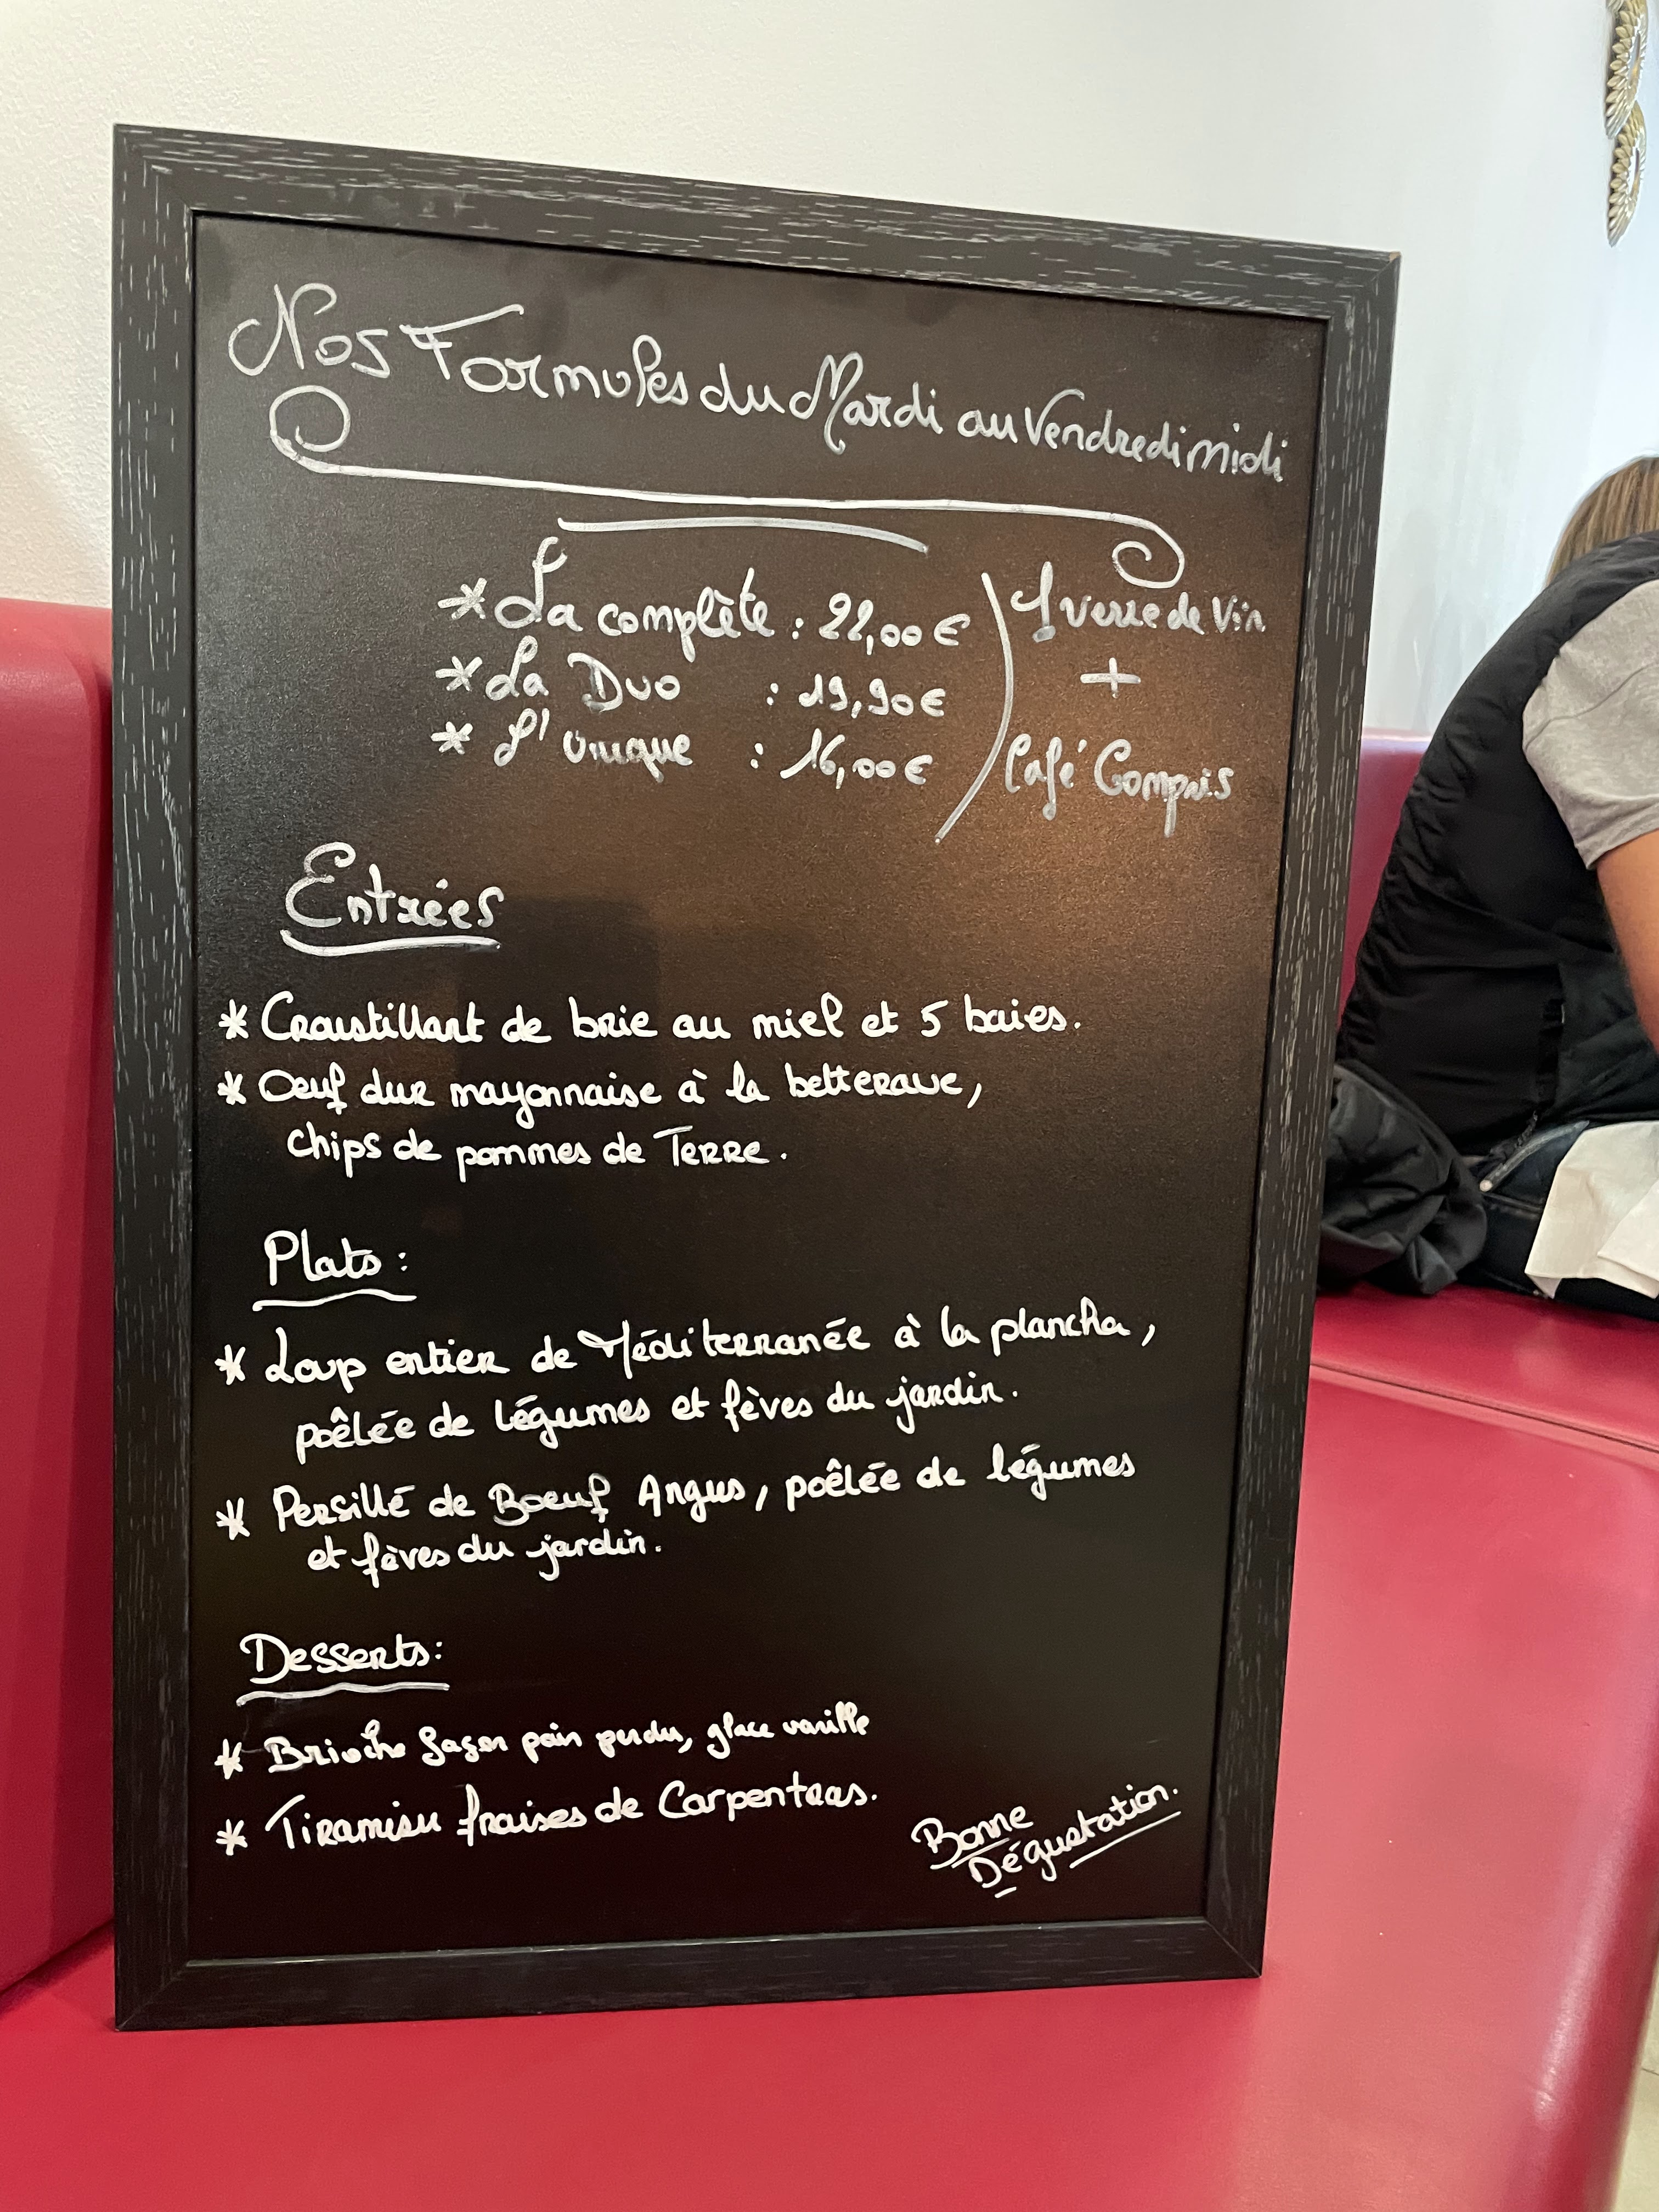 Nos Formules du Mardi au Vendredi midi
* La complète : 22,00€
* La Duo : 19,90€
* L'unique : 16,00€
1 verre de Vin
+
Café Compris
Entrées
* Croustillant de brie au miel et 5 baies.
* Oeuf dur mayonnaise à la betterave,
chips de pommes de Terre.
Plats :
* Loup entier de Méditerranée à la plancha,
poêlée de légumes et fèves du jardin.
* Persillé de Boeuf Angus, poêlée de légumes
et fèves du jardin.
Desserts :
* Brioche façon pain perdu, glace vanille
* Tiramisu fraises de Carpentras.
Bonne
Dégustation.